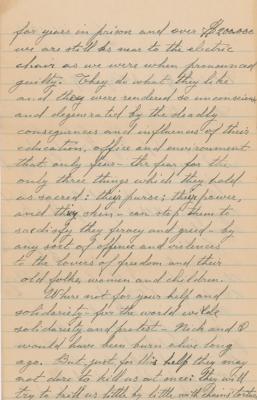 for years in prison and over $200.000
we are still as near to the electric
chair as we were when pronounced
guilty. They do what they like
and they were rendered so unconscious
and degenerated by the deadly
consequences and influences of their
education, office and environment
that only fear - the fear for the
only three things which they hold
as sacred: their purse; their power,
and they skin - can stop them to
sactisfy they firocy and greed - by
any sort of offence and violences
to the lovers of freedom and their
old folks, women and children.
Where not for your help and
solidariety - for the world wide
solidariety and protest - Nick and I
would have been burn alive long
ago. But just for this help they may
not dare to kill us at once: They will
try to kill us little by little with